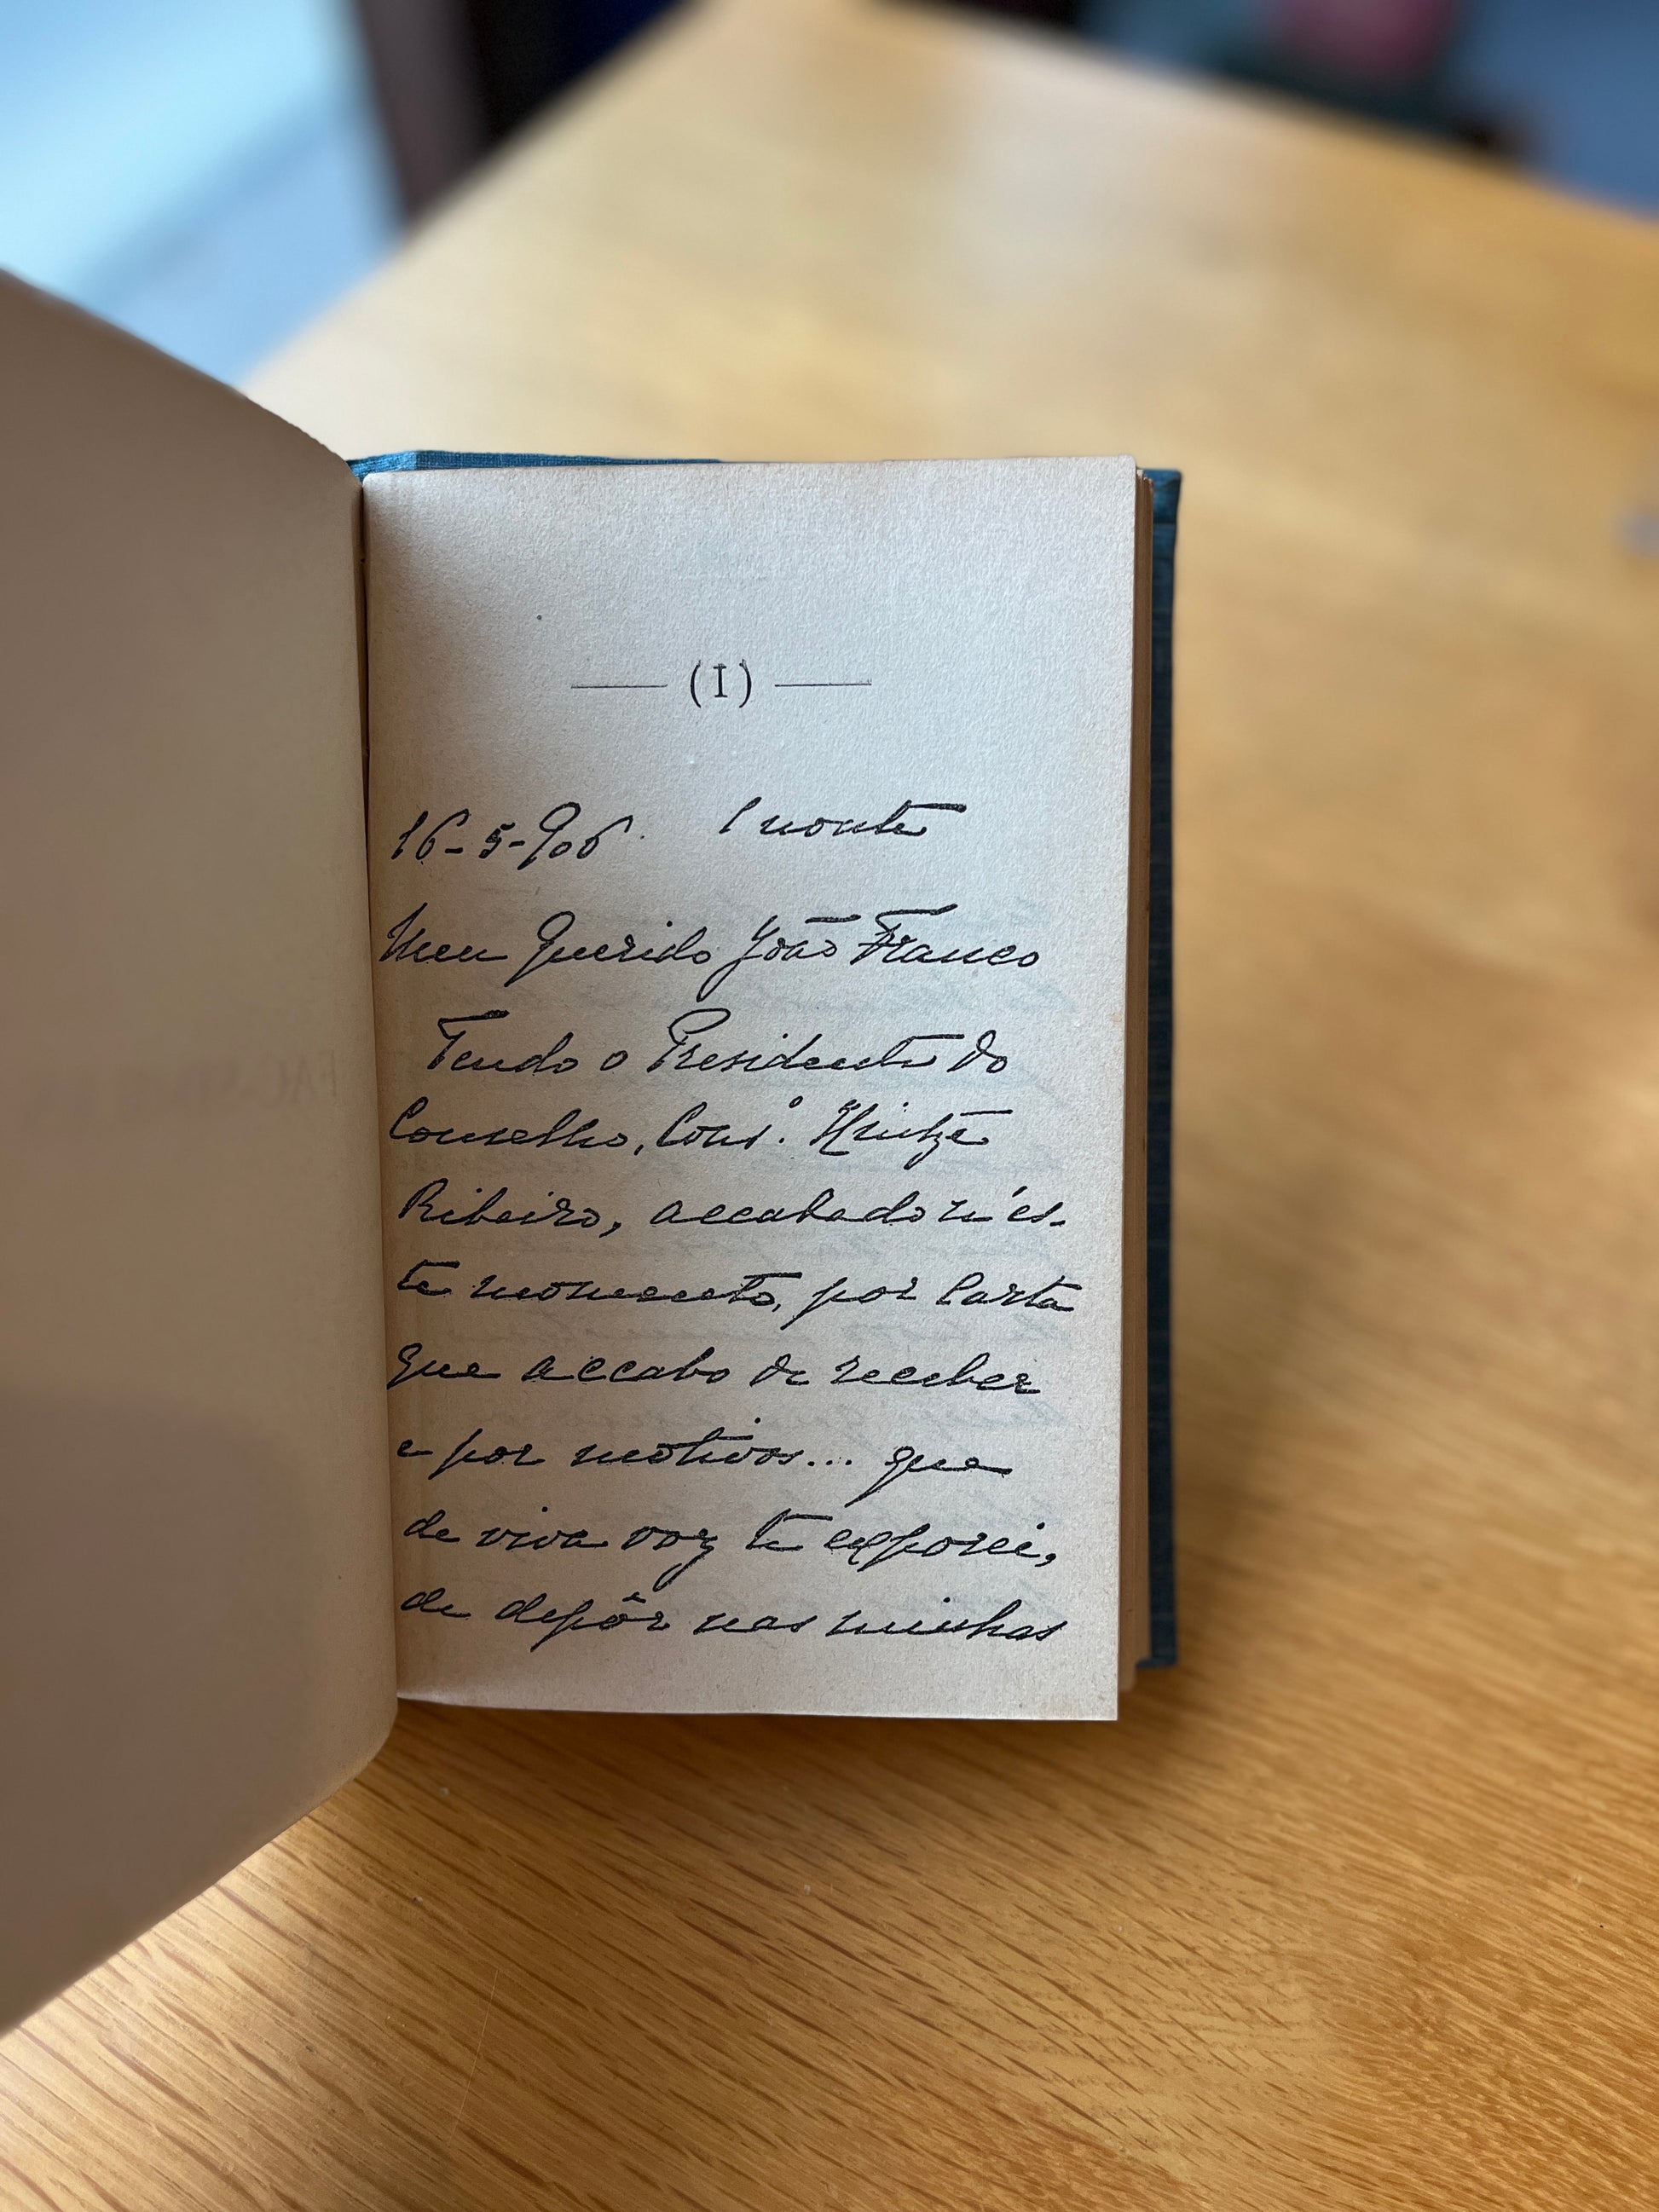 (I)
16-5-906. 1 noute
Meu Querido João Franco
Tendo o Presidente do
Conselho, Consº. Hintze
Ribeiro, accabado n'és-
te momento, por Carta
que accabo de receber
e por motivos... que
de viva voz te exporei,
de depôr nas minhas